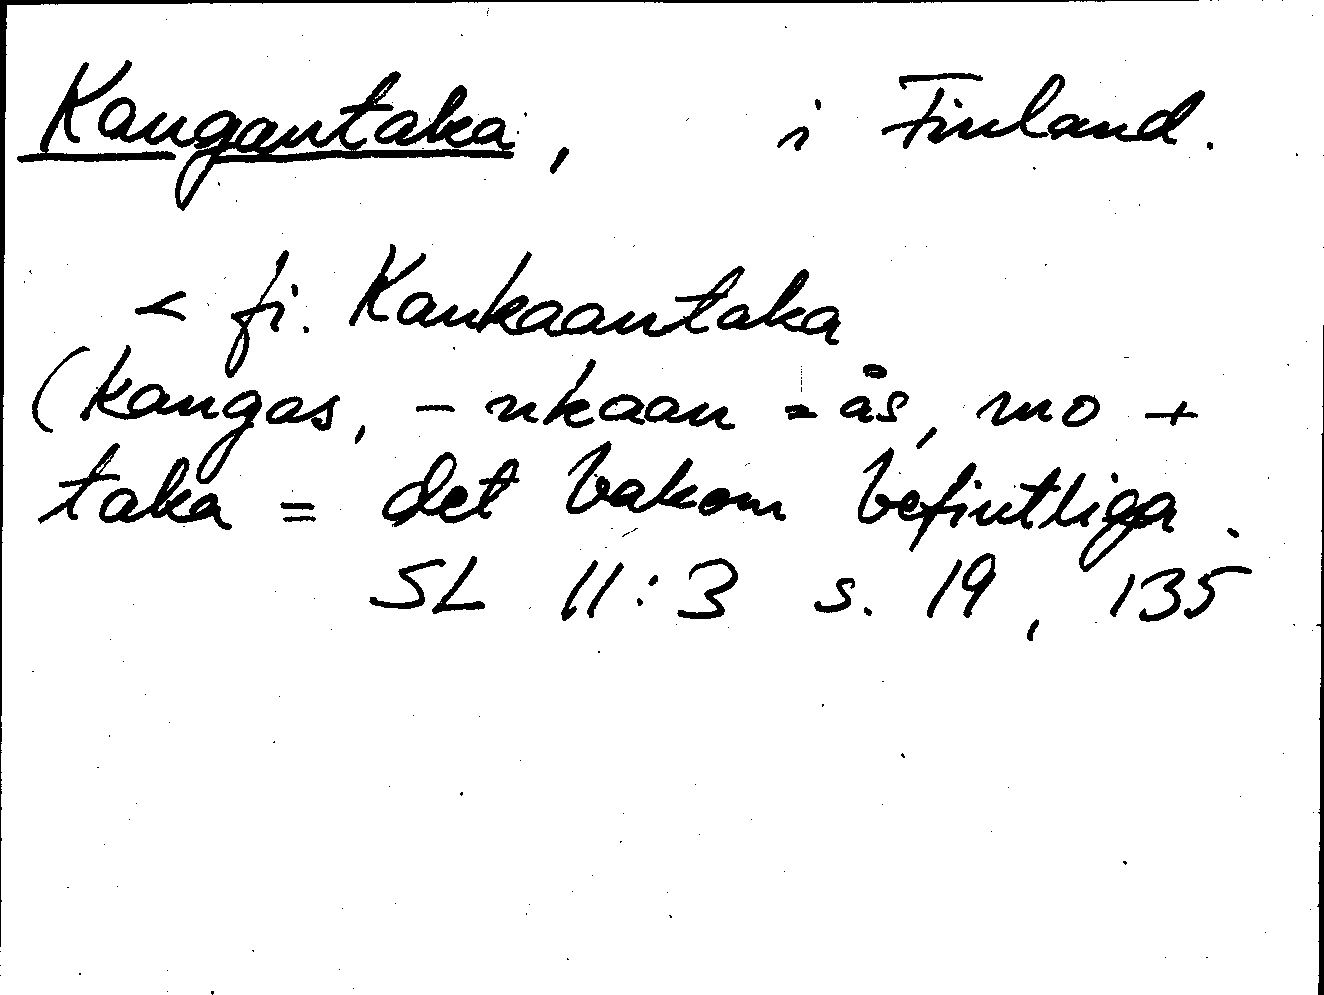 Kangantaka, i Finland.
< fi. Kankaantaka
(kangas, -nkaan = ås, mo +
taka = det bakom befintliga.
SL 11:3 s. 19, 135